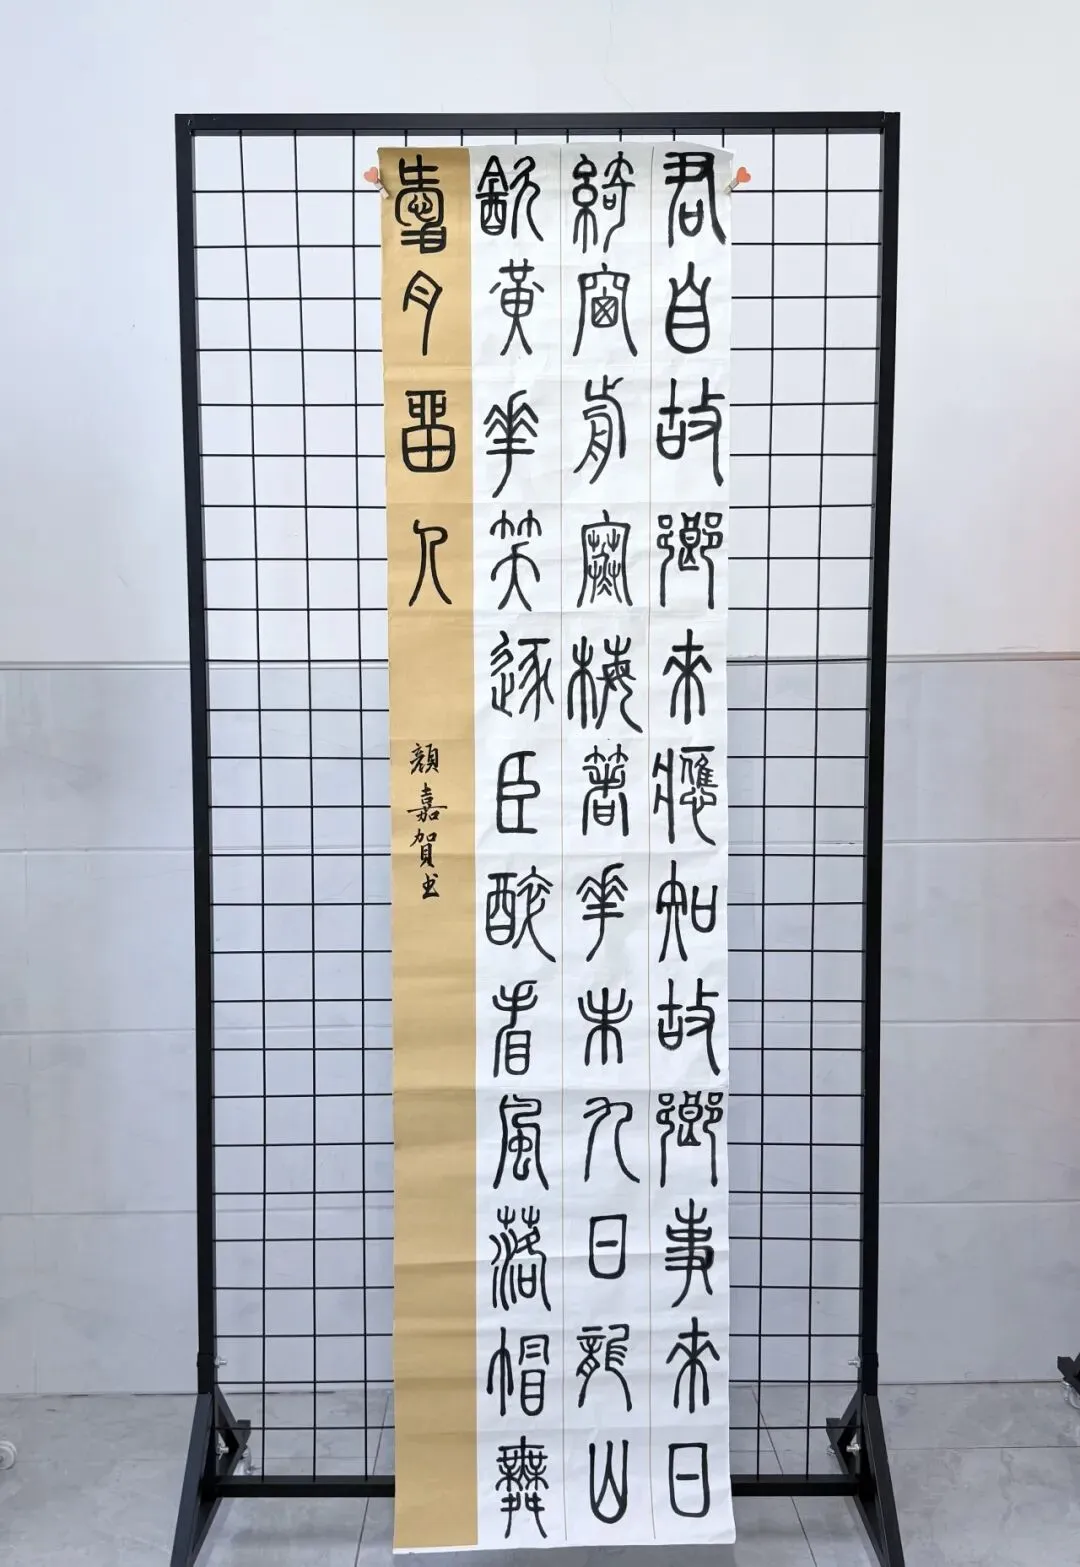 君自故鄉來應知故鄉事來日
綺窗前寒梅著花未九日龍山
飲黃花笑逐臣醉看風落帽舞
愛月留人
顏嘉賀书